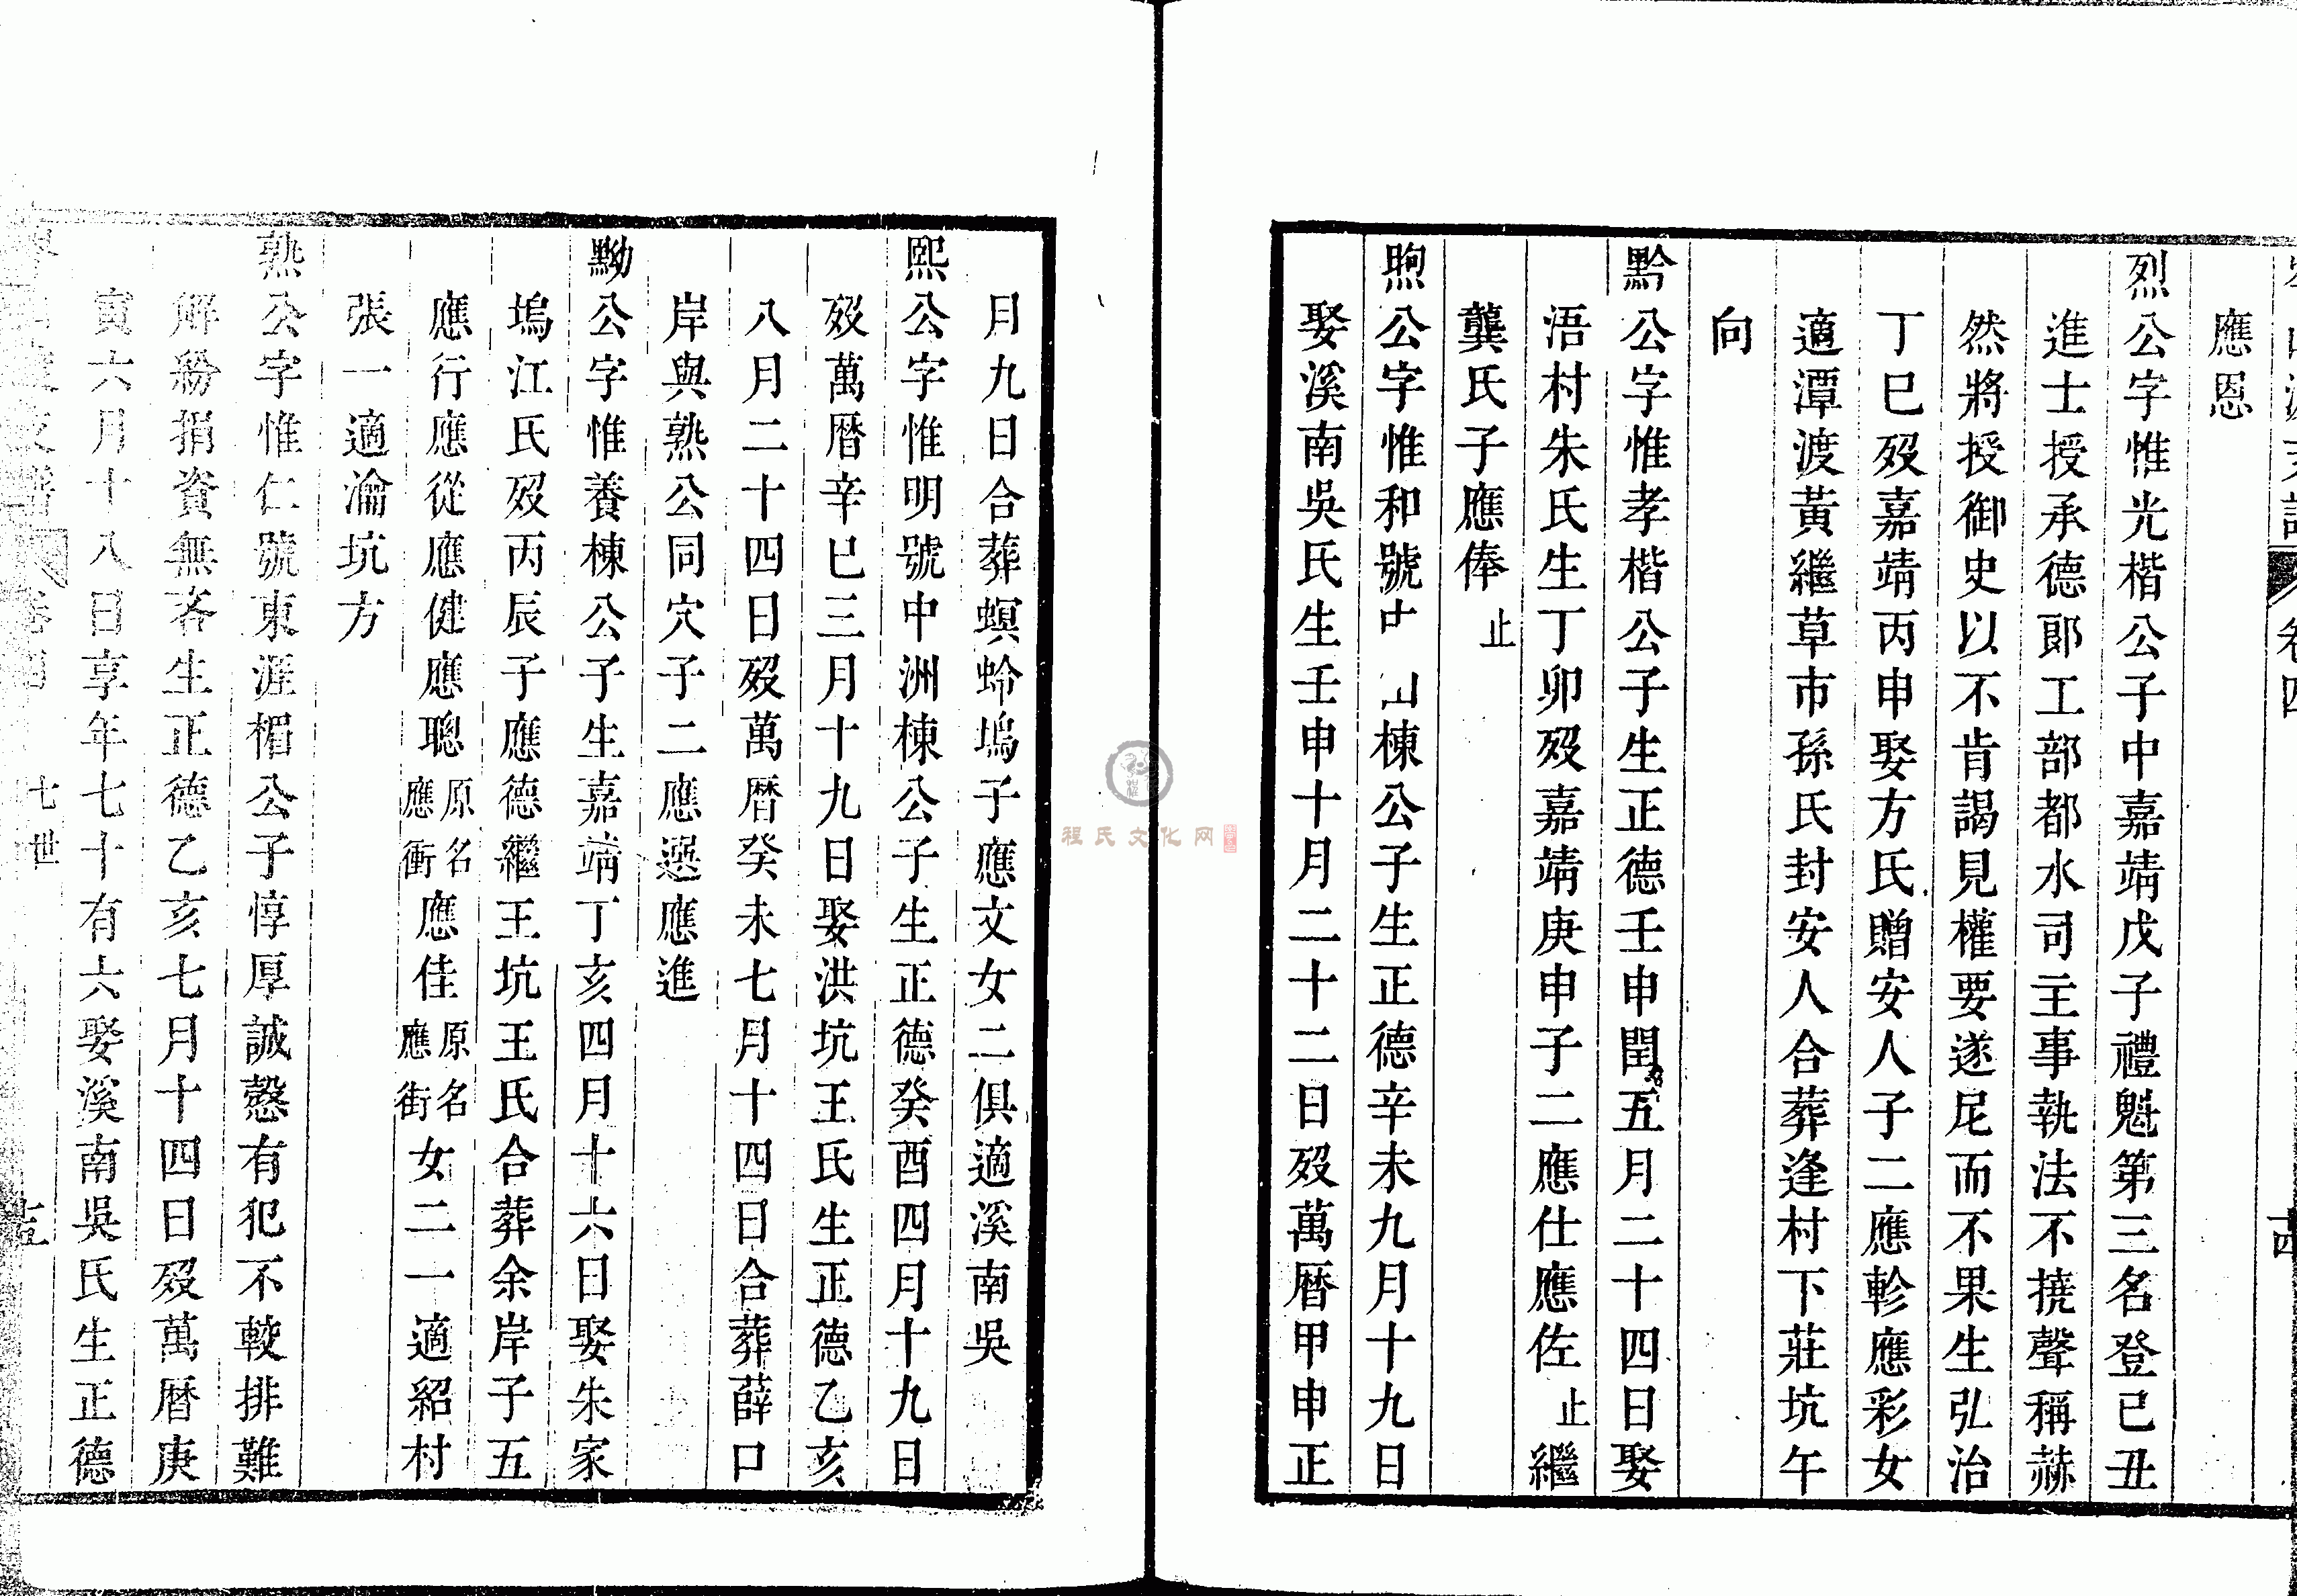 卷四
應恩
烈公字惟光楷公子中嘉靖戊子禮魁第三名登已丑
進士授承德郎工部都水司主事執法不撓聲稱赫
然將授御史以不肯謁見權要遂尼而不果生弘治
丁巳歿嘉靖丙申娶方氏贈安人子二應軫應彩女
適潭渡黃繼草市孫氏封安人合葬逢村下莊坑午
向
黔公字惟孝楷公子生正德壬申閏五月二十四日娶
浯村朱氏生丁卯歿嘉靖庚申子二應仕應佐止繼
龔氏子應俸止
煦公字惟和號山棟公子生正德辛未九月十九日
娶溪南吳氏生壬申十月二十二日歿萬曆甲申正
月九日合葬螟蛉塢子應文女二俱適溪南吳
熙公字惟明號中洲棟公子生正德癸酉四月十九日
歿萬曆辛巳三月十九日娶洪坑王氏生正德乙亥
八月二十四日歿萬曆癸未七月十四日合葬薛口
岸與熟公同穴子二應選應進
黝公字惟養棟公子生嘉靖丁亥四月十六日娶朱家
塢江氏歿丙辰子應德繼王坑王氏合葬余岸子五
應行應從應健應聰原名應衝應佳原名應街女二一適紹村
張一適瀹坑方
熟公字惟仁號東涯楣公子惇厚誠慤有犯不較排難
解紛捐資無吝生正德乙亥七月十四日歿萬曆庚
寅六月十八日享年七十有六娶溪南吳氏生正德
七世